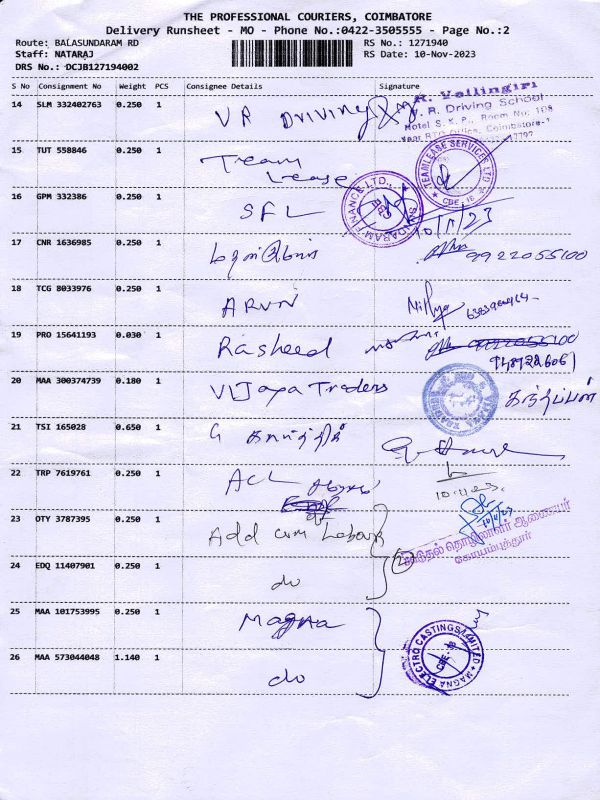 THE PROFESSIONAL COURIERS, COIMBATORE
Delivery Runsheet - MO - Phone No.:0422-3505555 - Page No.:2
Route: BALASUNDARAM RD
Staff: NATARAJ
DRS No.: DCJB127194002
RS No.: 1271940
RS Date: 10-Nov-2023
S No Consignment No Weight PCS Consignee Details Signature
14 SLM 332402763 0.250 1 VR Driving
R. Vellingiri
V. R. Driving School
Hotel S. K. P., Room No: 108
Near RTO Office, Coimbatore-1
15 TUT 558846 0.250 1 Team Lease
TEAMLEASE SERVICES LTD
CBE-18
16 GPM 332386 0.250 1 SFL
SUNDARAM FINANCE LTD.,
10/11/23
17 CNR 1636985 0.250 1
9922055100
18 TCG 8033976 0.250 1 ARVN Nithya
19 PRO 15641193 0.030 1 Rasheed
20 MAA 300374739 0.180 1 Vijaya Traders
21 TSI 165028 0.650 1 G
22 TRP 7619761 0.250 1 ACL
23 OTY 3787395 0.250 1 Add com Labour
கூடுதல் தொழிலாளர் ஆணையர்
கோயம்புத்தூர்
24 EDQ 11407901 0.250 1 do
25 MAA 101753995 0.250 1 Magna
MAGNA ELECTRO CASTINGS LIMITED
CBE-18
26 MAA 573044048 1.140 1 do